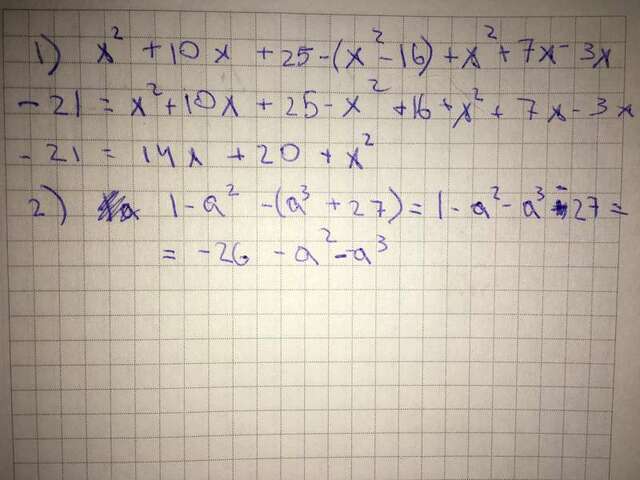 1) x² + 10x + 25 - (x² - 16) + x² + 7x - 3x
- 21 = x² + 10x + 25 - x² + 16 + x² + 7x - 3x
- 21 = 14x + 20 + x²
2) 1 - a² - (a³ + 27) = 1 - a² - a³ - 27 =
= -26 - a² - a³